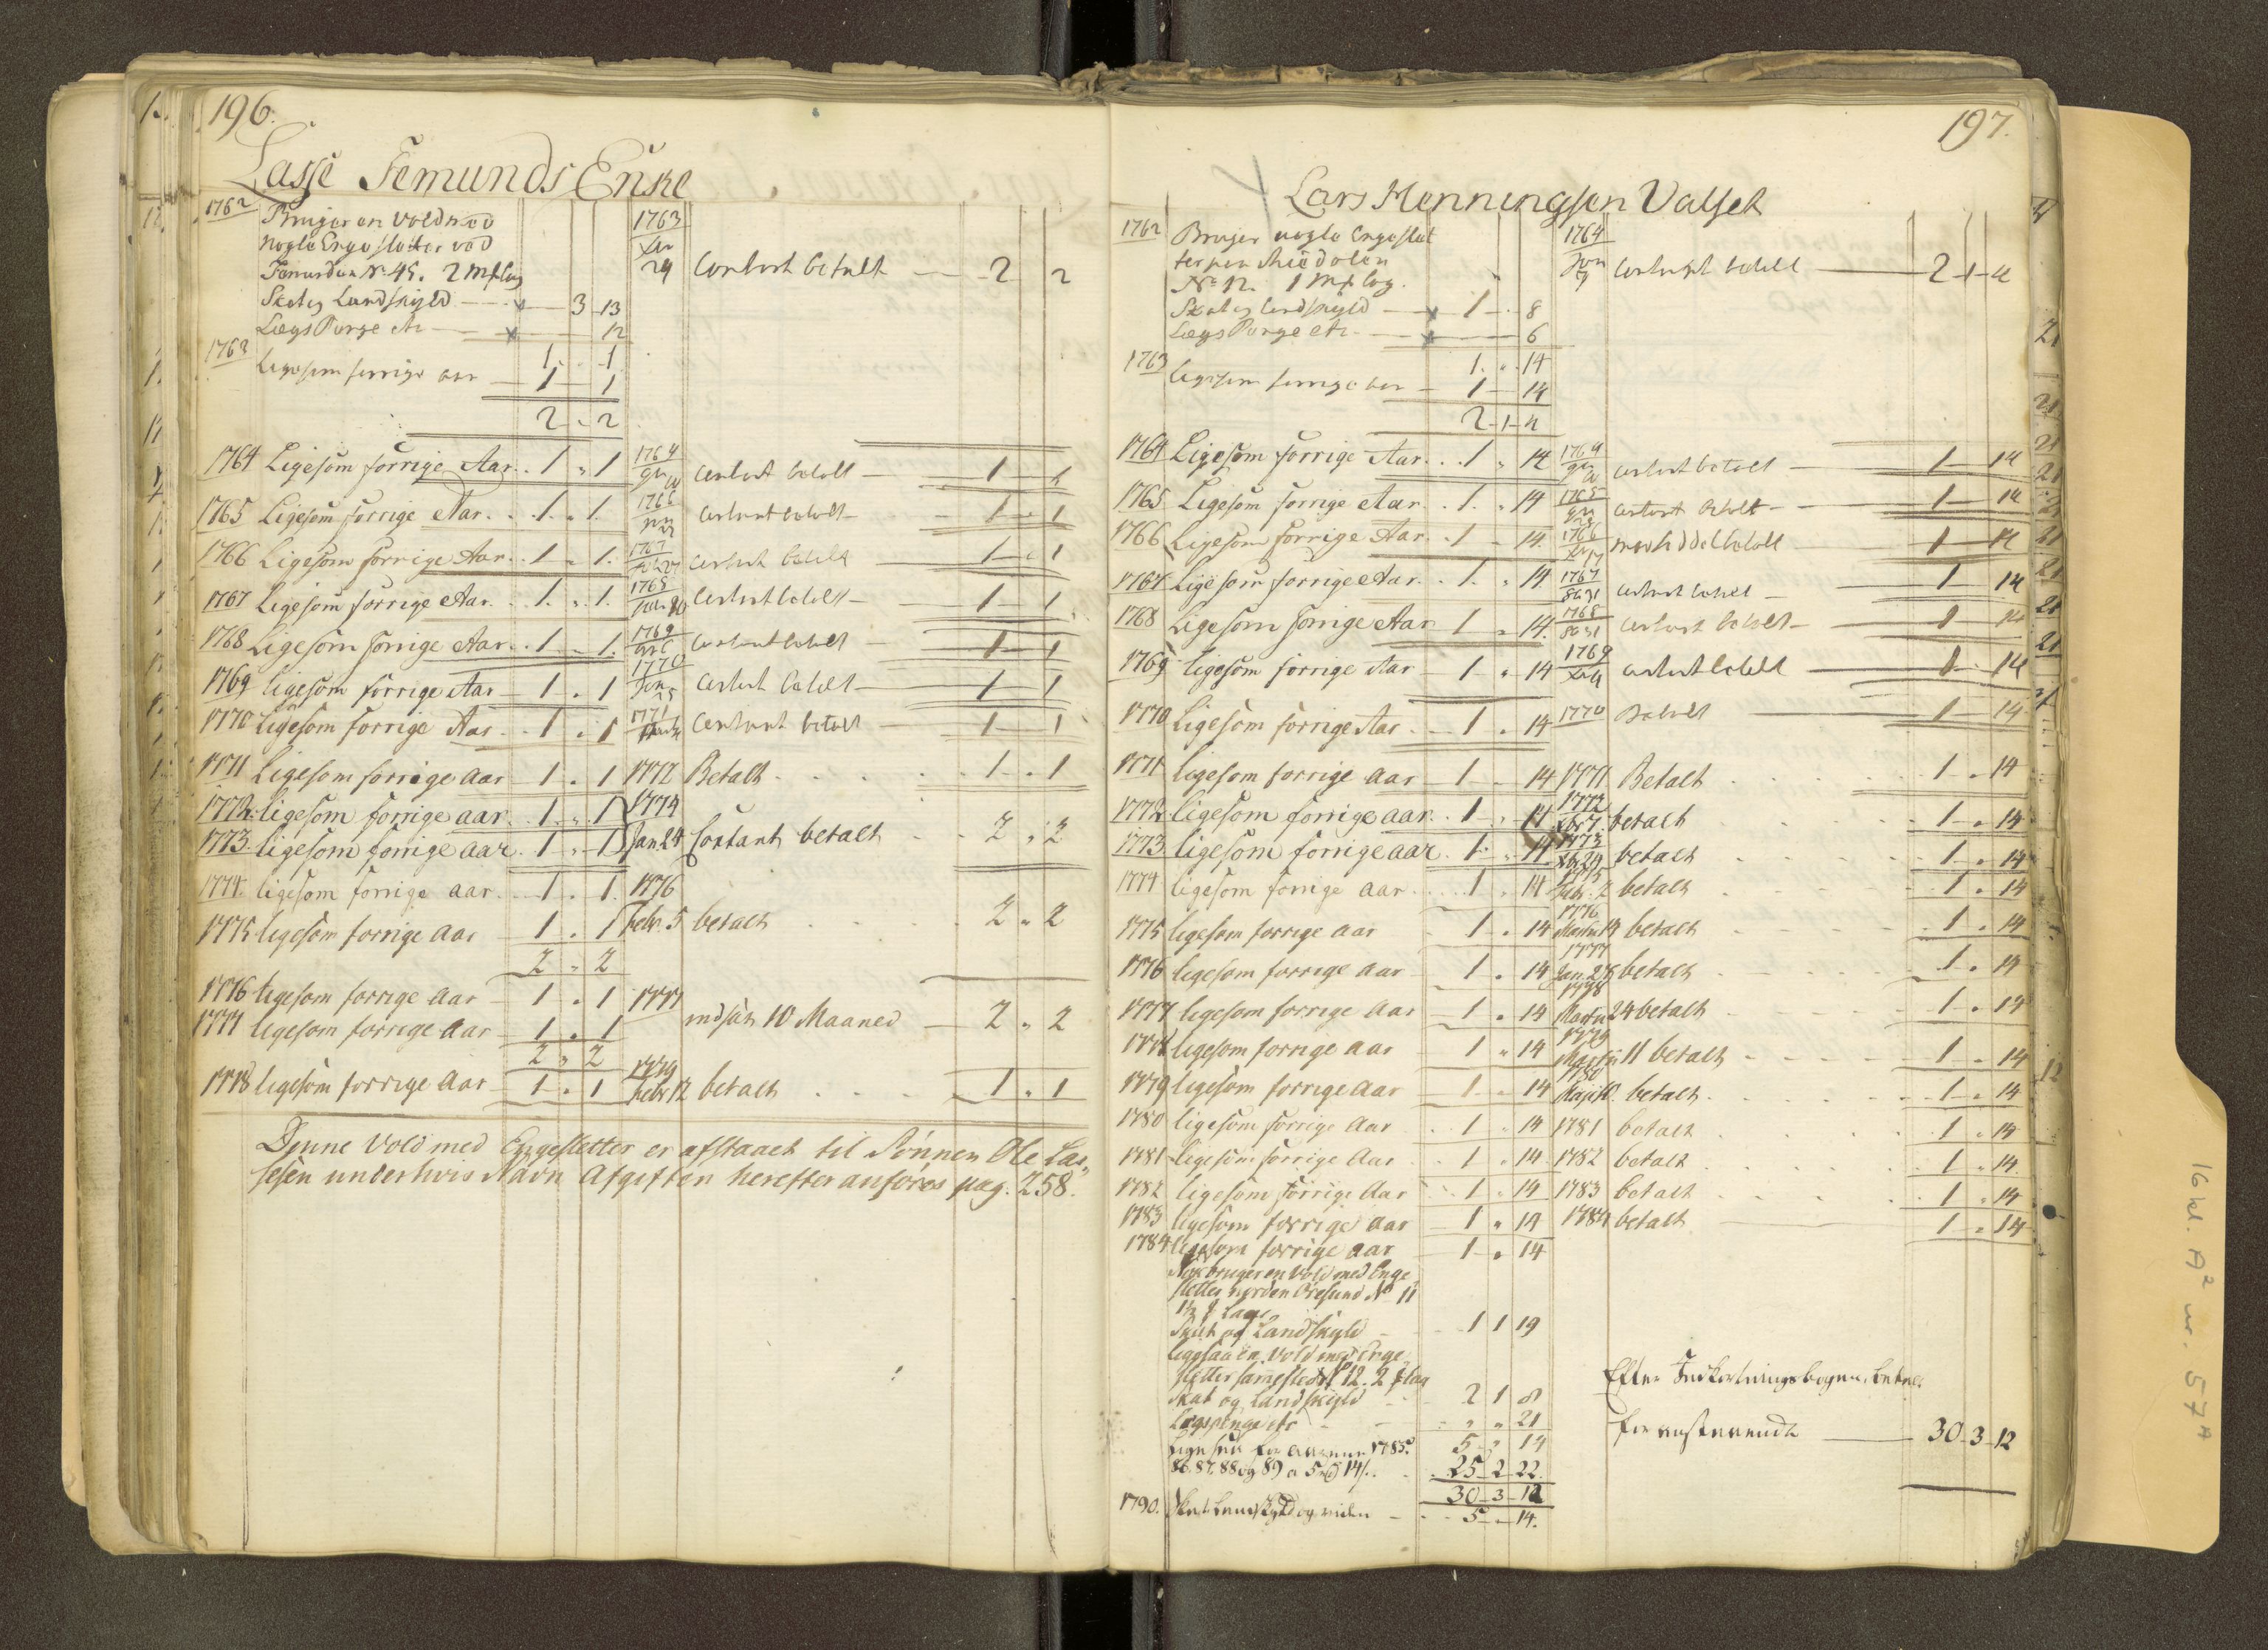 196.
Lasse Femunds Enke
1762 Bruger en Vold med
nogle Enge sletter ved
Femunden No 45. 2 Mk lag
Skat og Landskyld 3 13
Lægs Penge etc 12
1 . 1
1763 Ligesom forrige aar 1 1
2 . 2
1763
Xbr
29 Contant betalt 2 2
1764 Ligesom forrige Aar. . 1 " 1 1764 Contant betalt 1 1
1765 Ligesom forrige Aar. . 1. " 1. 1766 Contant betalt 1 1
1766 Ligesom forrige Aar. . 1 " 1. 1767 Contant betalt 1 1
1767 Ligesom forrige Aar. . 1. " 1. 1768 Contant betalt 1 1
1768 Ligesom forrige Aar. . 1 " 1. 1769 Contant betalt 1 1
1769 ligesom forrige Aar 1 " 1 1770 Contant betalt 1 1
1770 Ligesom forrige Aar. . 1 " 1 1771 Contant betalt 1 1
1771 Ligesom forrige aar 1 " 1 1772 Betalt 1 " 1
1772. ligesom forrige aar. 1 " 1 1774
1773. ligesom forrige aar. 1 " 1 Jan. 24 Contant betalt 2 " 2
1774. ligesom forrige aar. 1 " 1. 1776
1775 ligesom forrige aar 1 " 1 febr. 5 betalt 2 " 2
2 " 2
1776 ligesom forrige aar 1 " 1 1777
1777 ligesom forrige aar 1 " 1 indsat 10 Maaned 2 " 2
2 " 2
1778 ligesom forrige aar 1 " 1 1779 febr 12 betalt 1 " 1
Denne Vold med Engesletter er afstaaet til Sønnen Ole Las„
sesen under hvis Navn Afgiften herefter anføres pag. 258.
197.
Lars Henningsen Valset
1762 Bruger nogle Engeslet
ter
No 12. 1 Mk lag.
Skat og landskyld 1 " 8
Lægs Penge etc 6
1. " 14
1763 ligesom forrige aar 1 14
2 1 4
1764
Jan
7 Contant betalt 2 1 4
1764 Ligesom forrige Aar. . 1 " 14 1764 Contant betalt 1 14
1765 Ligesom forrige Aar. . 1. " 14 1765 Contant betalt 1 14
1766 Ligesom forrige Aar. . 1 " 14. 1766 betalt 1 14
1767 Ligesom forrige Aar. . 1. " 14 1767 8b 31 Contant betalt 1 14
1768 Ligesom forrige Aar 1 " 14. 1768 8b 31 Contant betalt 1 14
1769 ligesom forrige Aar 1 " 14 1769 Contant betalt 1 14
1770 Ligesom forrige Aar. 1 " 14 1770 Betalt 1 14
1771 ligesom forrige aar 1 " 14 1771 Betalt 1 " 14
1772 ligesom forrige aar. 1 " 14 1772 Xbr 7. betalt 1 " 14
1773 ligesom forrige aar. 1 " 14 1773 Xbr 29 betalt 1 " 14
1774 ligesom forrige aar. 1 " 14 1775 febr. 7 betalt 1 " 14
1775 ligesom forrige aar 1 " 14 1776 Martii 14 betalt 1 " 14
1776 ligesom forrige aar 1 " 14 1777 Jan. 27 betalt 1 " 14
1777 ligesom forrige aar 1 " 14 1778 Martii 24 betalt 1 " 14
1778 ligesom forrige aar 1 " 14 1779 Martii 11 betalt 1 " 14
1779 ligesom forrige aar 1 " 14 1780 Maji 10. betalt 1 " 14
1780 ligesom forrige Aar 1 " 14 1781 betalt 1 " 14
1781 ligesom forrige Aar 1 " 14 1782 betalt 1 " 14.
1782 ligesom forrige Aar 1 " 14 1783 betalt 1 " 14
1783 ligesom forrige aar 1 " 14 1784 betalt 1 " 14
1784 ligesom forrige aar 1 " 14
bruger en Vold med Enge„
sletter norden Øresund No 11
Skat og Landskyld 1 1 19
ligesaa en Vold med Enge„
sletter samesteds No 12. 2 lag
Skat og Landskyld 2 1 8
Lægspenge etc " " 21
Ligesaa for aarene 1785. 5 " 14
86. 87. 88 og 89 a 5 rd 14 s. 25 2 22.
30 3 12
1790. Skat Landskyld og videre 5 " 14.
Efter Indkortningsbogen betalt
for resterende 30 3 12
16 kl. A² nr. 57ᴬ